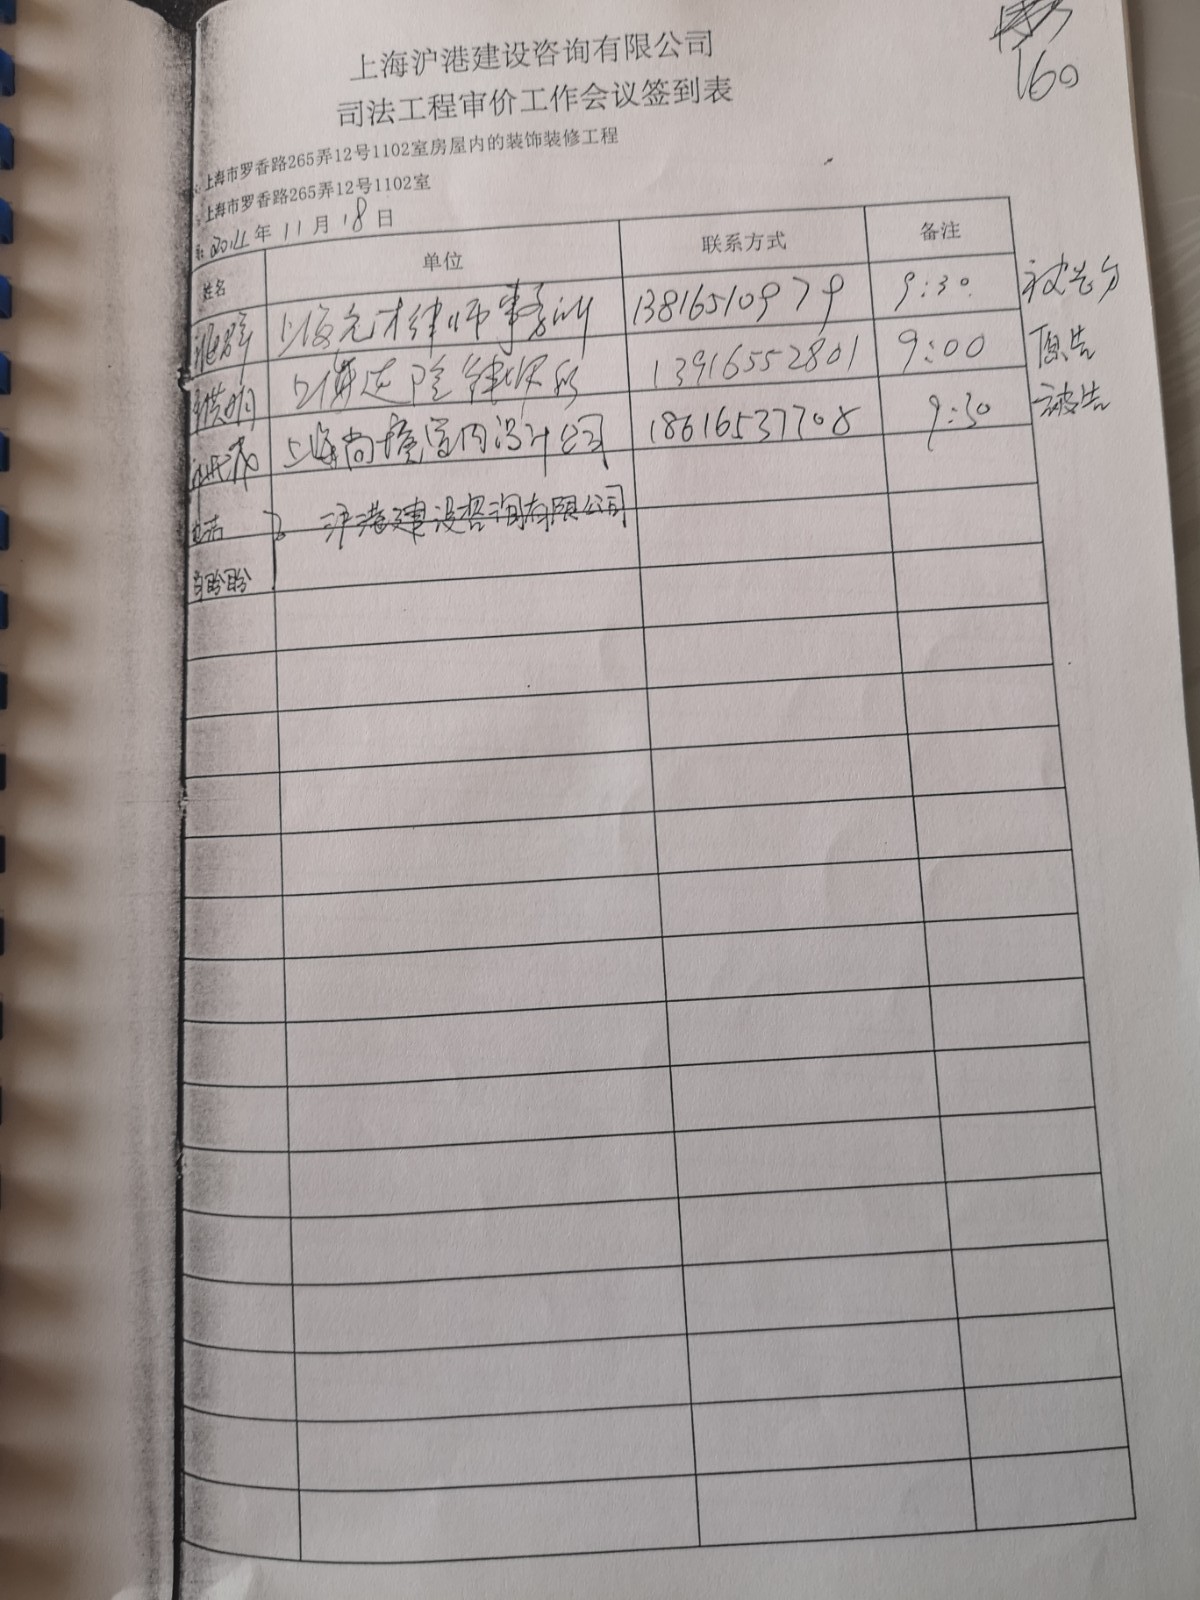 160
上海沪港建设咨询有限公司
司法工程审价工作会议签到表
上海市罗香路265弄12号1102室房屋内的装饰装修工程
上海市罗香路265弄12号1102室
年 11 月 18 日
姓名 单位 联系方式 备注
上海 律师事务所 13816510979 9:30
上海 律师 13916552801 9:00 原告
上海尚 室内设计公司 18616537708 9:30 被告
沪港建设咨询有限公司
盼盼